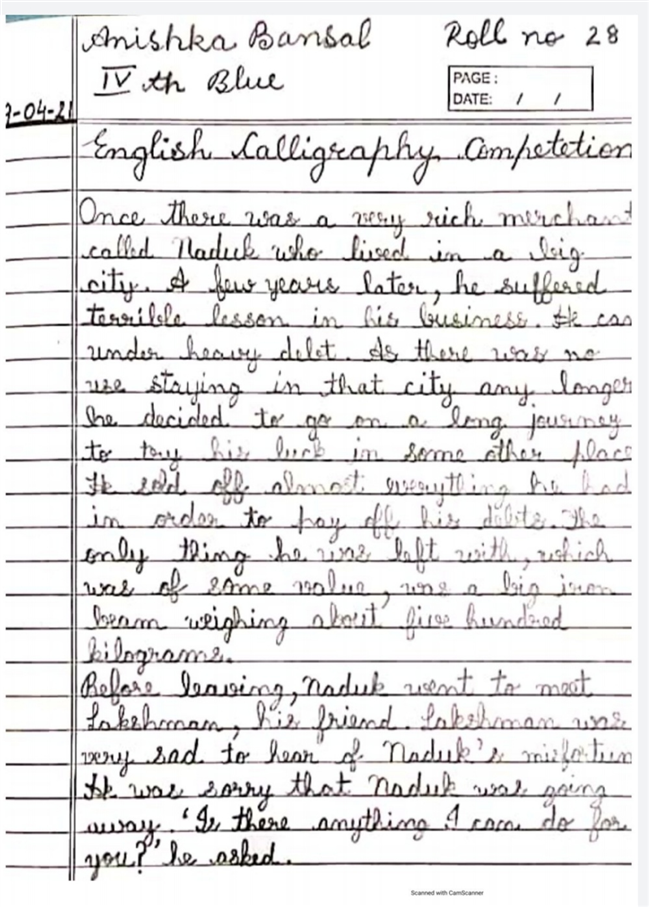 Anishka Bansal Roll no 28
IV th Blue
PAGE:
DATE: / /
-04-21
English Calligraphy Competetion
Once there was a very rich merchant
called Naduk who lived in a big
city. A few years later, he suffered
terrible lesson in his business. He
under heavy debt. As there was no
use staying in that city any longer
he decided to go on a long journey
to try his luck in some other plac
He sold off almost everything he had
in order to pay off his debts. The
only thing he was left with, which
was of some value, was a big iron
beam weighing about five hundred
kilograms.
Before leaving, Naduk went to meet
Lakshman, his friend. Lakshman was
very sad to hear of Naduk's misfortun
He was sorry that Naduk was going
away. 'Is there anything I can do for
you?' he asked.
Scanned with CamScanner